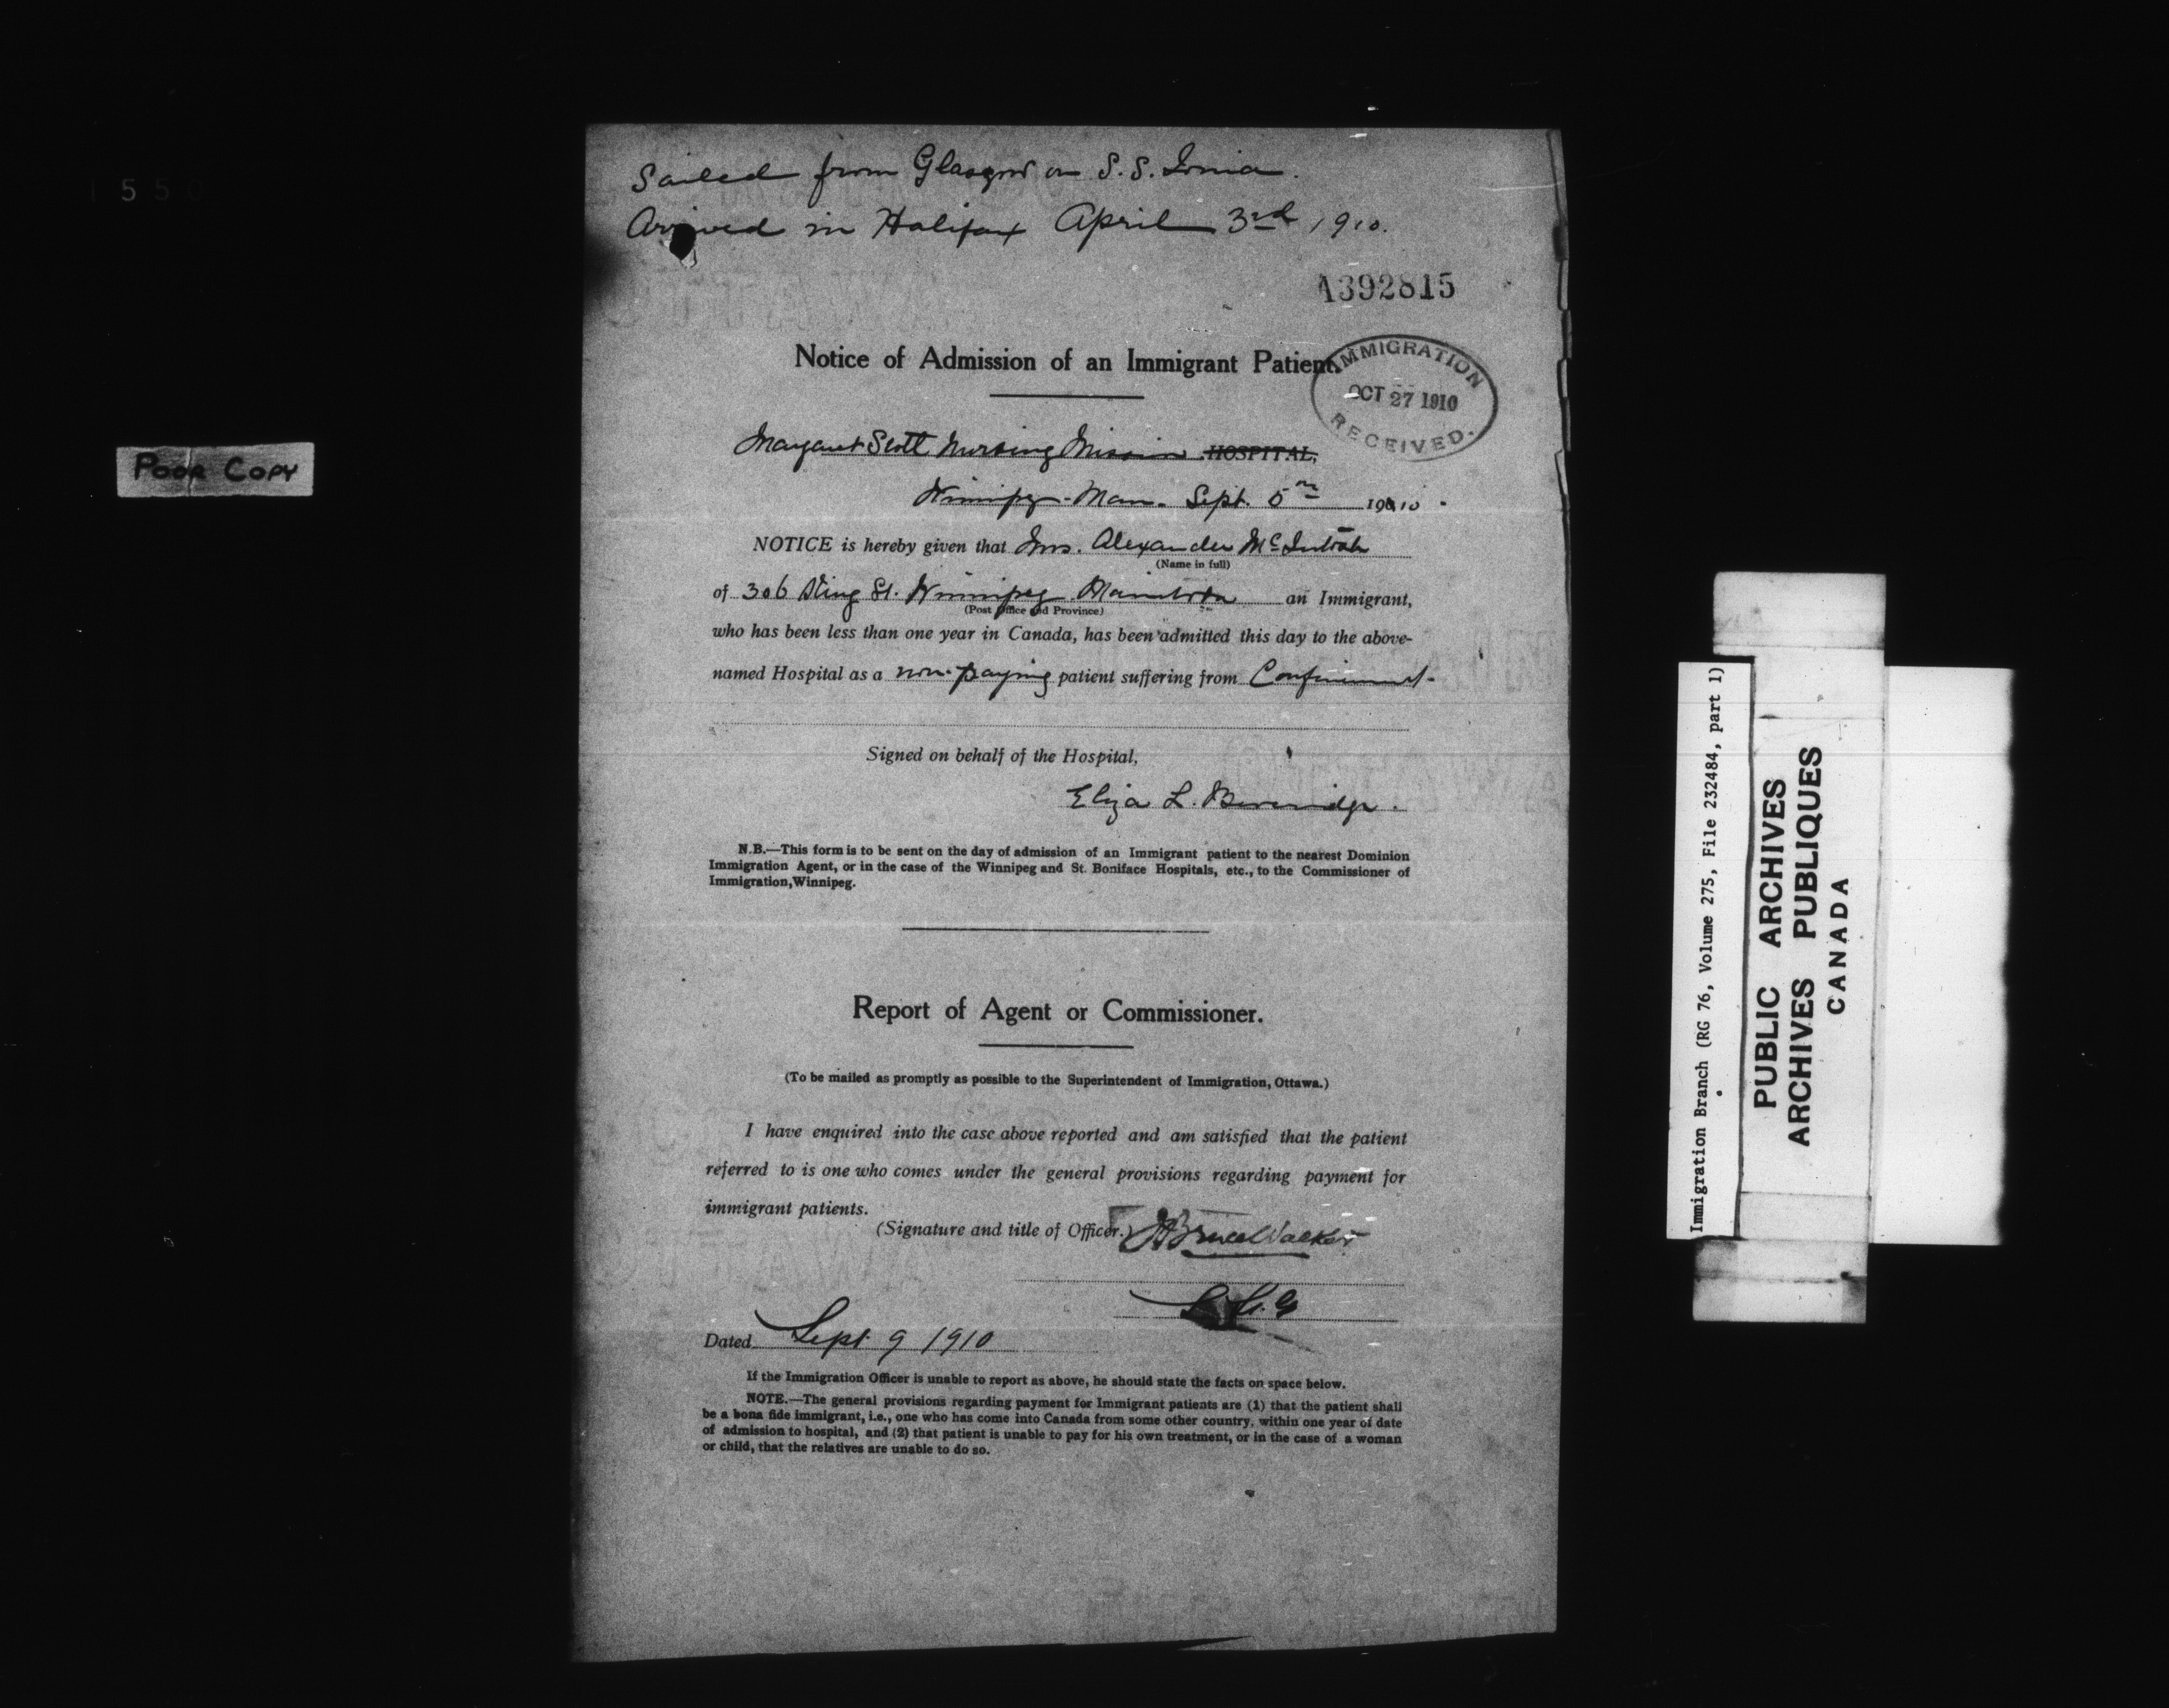 Sailed from Glasgow on S.S. Ionia.
Arrived in Halifax April 3rd 1910.
A392815
Notice of Admission of an Immigrant Patient.
IMMIGRATION
OCT 27 1910
RECEIVED.
Margaret Scott Nursing Mission HOSPITAL,
Winnipeg - Man. Sept. 5th 1910.
NOTICE is hereby given that Mrs. Alexander McIntosh
(Name in full)
of 306 King St. Winnipeg Manitoba an Immigrant,
(Post Office and Province)
who has been less than one year in Canada, has been admitted this day to the above-
named Hospital as a non-paying patient suffering from Confinement.
Signed on behalf of the Hospital,
Eliza L. Beveridge.
N.B.—This form is to be sent on the day of admission of an Immigrant patient to the nearest Dominion
Immigration Agent, or in the case of the Winnipeg and St. Boniface Hospitals, etc., to the Commissioner of
Immigration, Winnipeg.
Report of Agent or Commissioner.
(To be mailed as promptly as possible to the Superintendent of Immigration, Ottawa.)
I have enquired into the case above reported and am satisfied that the patient
referred to is one who comes under the general provisions regarding payment for
immigrant patients.
(Signature and title of Officer.) J Bruce Walker
Dated Sept 9 1910
If the Immigration Officer is unable to report as above, he should state the facts on space below.
NOTE.—The general provisions regarding payment for Immigrant patients are (1) that the patient shall
be a bona fide immigrant, i.e., one who has come into Canada from some other country, within one year of date
of admission to hospital, and (2) that patient is unable to pay for his own treatment, or in the case of a woman
or child, that the relatives are unable to do so.
POOR COPY
Immigration Branch (RG 76, Volume 275, File 232484, part 1)
PUBLIC ARCHIVES
ARCHIVES PUBLIQUES
CANADA